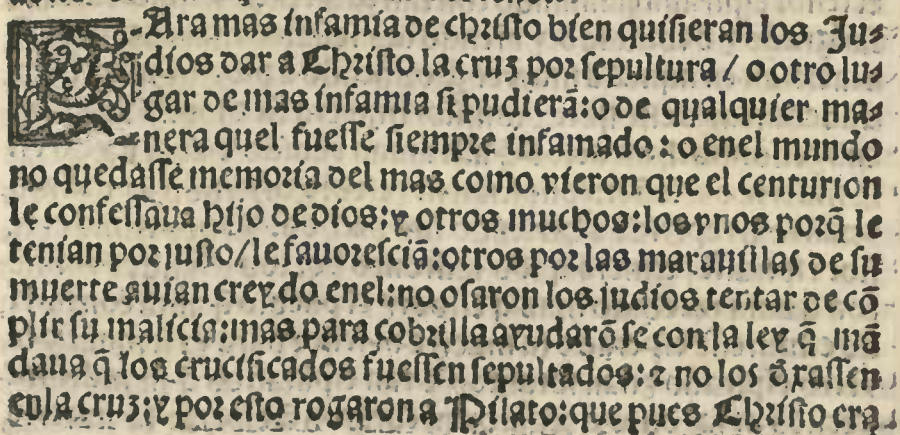 PAra mas infamia de christo bien quisieran los Ju-
dios dar a Christo la cruz por sepultura / o otro lu-
gar de mas infamia si pudierā: o de qualquier ma-
nera quel fuesse siempre infamado: o enel mundo
no quedasse memoria del mas como vieron que el centurion
le confessaua hijo de dios: y otros muchos: los vnos porq̄ le
tenian por justo / le fauoresciā: otros por las marauillas de su
muerte auian creydo enel: no osaron los judios tentar de cō
plir su malicia: mas para cobrilla ayudarō se con la ley q̄ mā
daua q̄ los crucificados fuessen sepultados: ⁊ no los d̄xassen
enla cruz: y por esto rogaron a Pilato: que pues Christo era